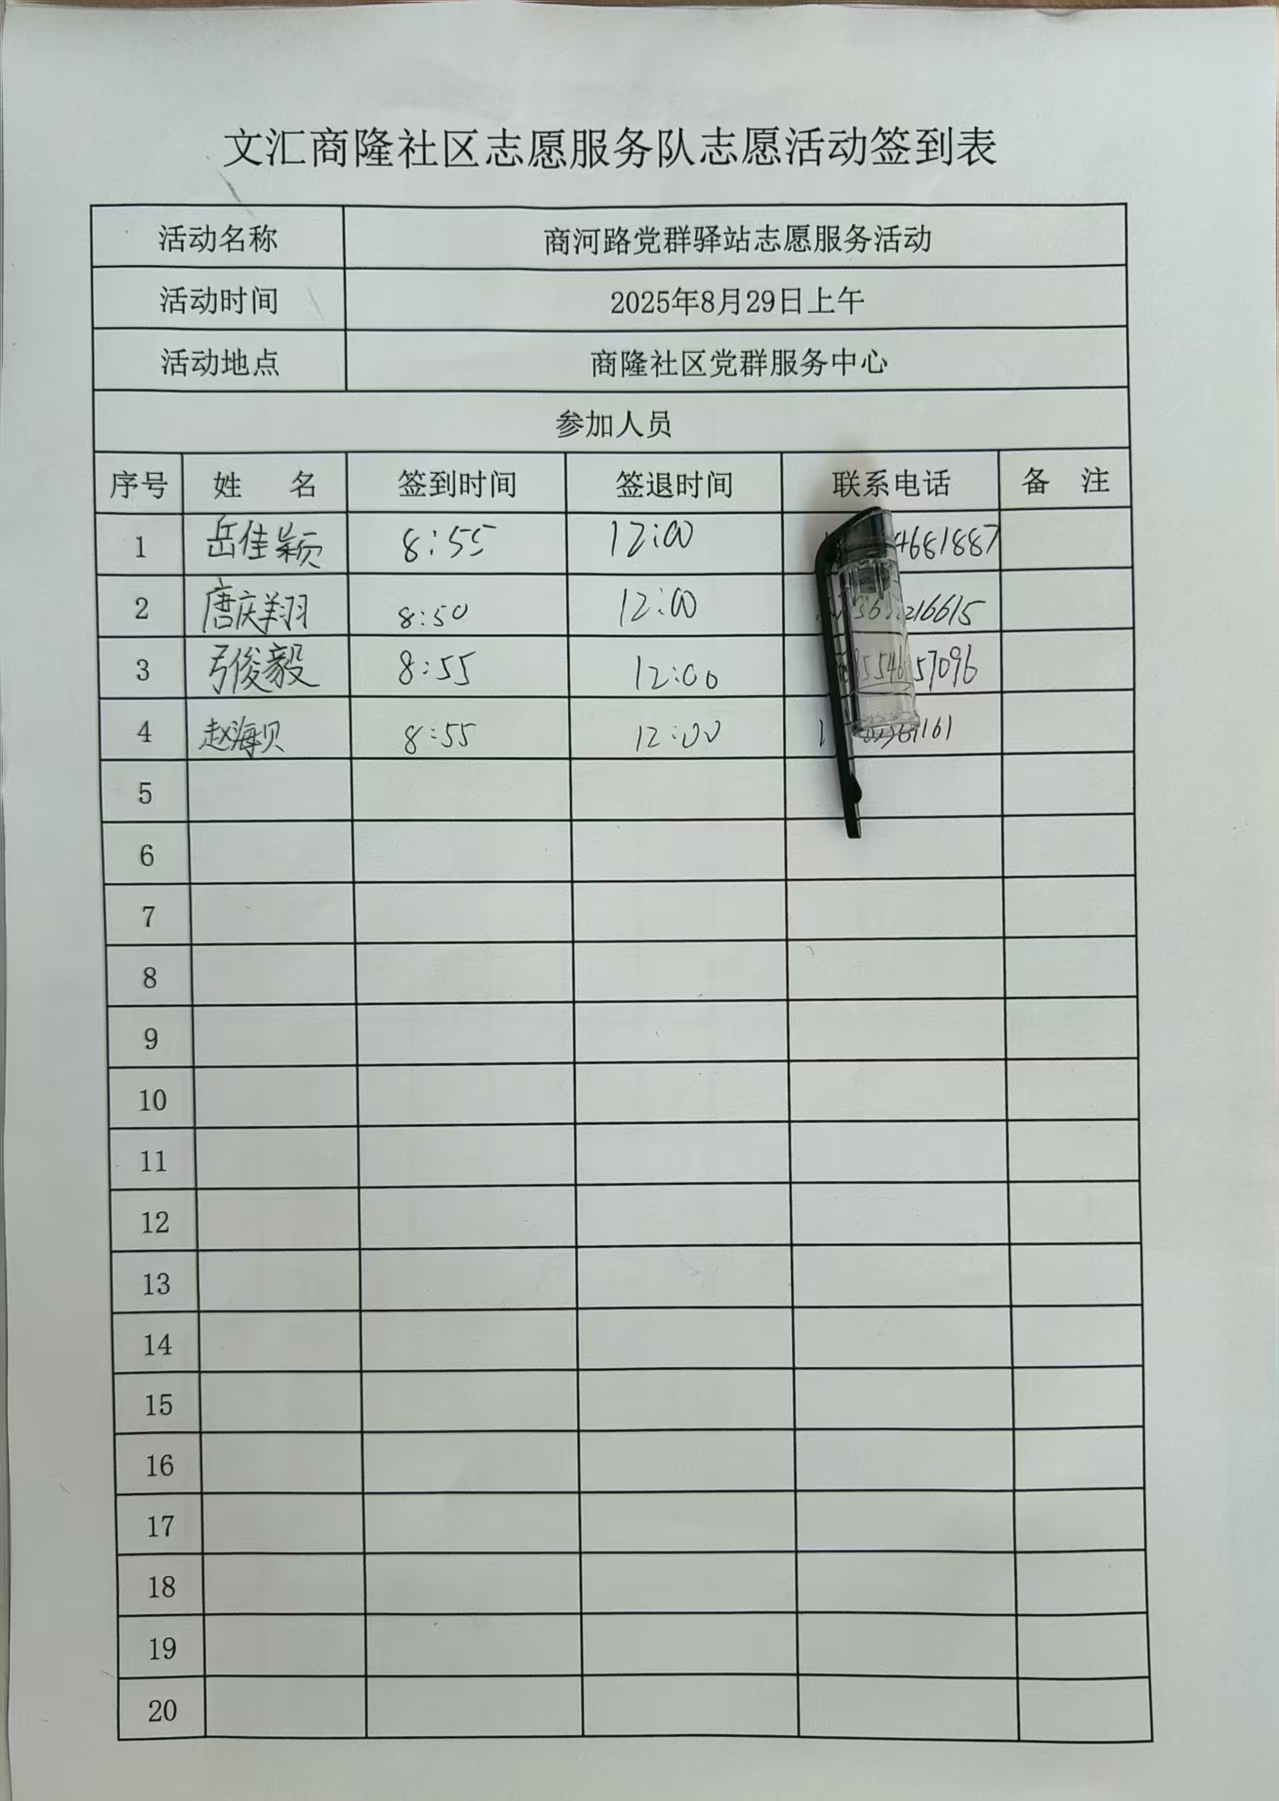 文汇商隆社区志愿服务队志愿活动签到表
活动名称 商河路党群驿站志愿服务活动
活动时间 2025年8月29日上午
活动地点 商隆社区党群服务中心
参加人员
序号 姓 名 签到时间 签退时间 联系电话 备 注
1 岳佳颖 8:55 12:00 4681887
2 唐庆翔 8:50 12:00 216615
3 弓俊毅 8:55 12:00 57096
4 赵海贝 8:55 12:00 1161
5
6
7
8
9
10
11
12
13
14
15
16
17
18
19
20